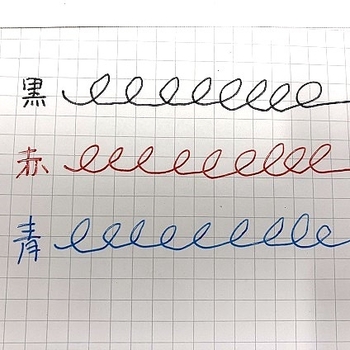 黒
赤
青